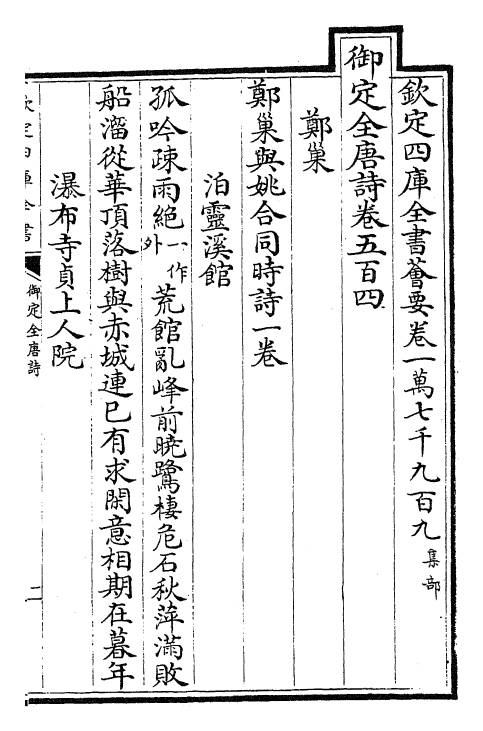 欽定四庫全書薈要卷一萬七千九百九 集部
御定全唐詩卷五百四
鄭巢
鄭巢與姚合同時詩一卷
泊靈溪館
孤吟疎雨絕一作外荒館亂峰前曉鷺棲危石秋萍滿敗
船溜從華頂落樹與赤城連已有求閑意相期在暮年
瀑布寺貞上人院
欽定四庫全書
御定全唐詩
二